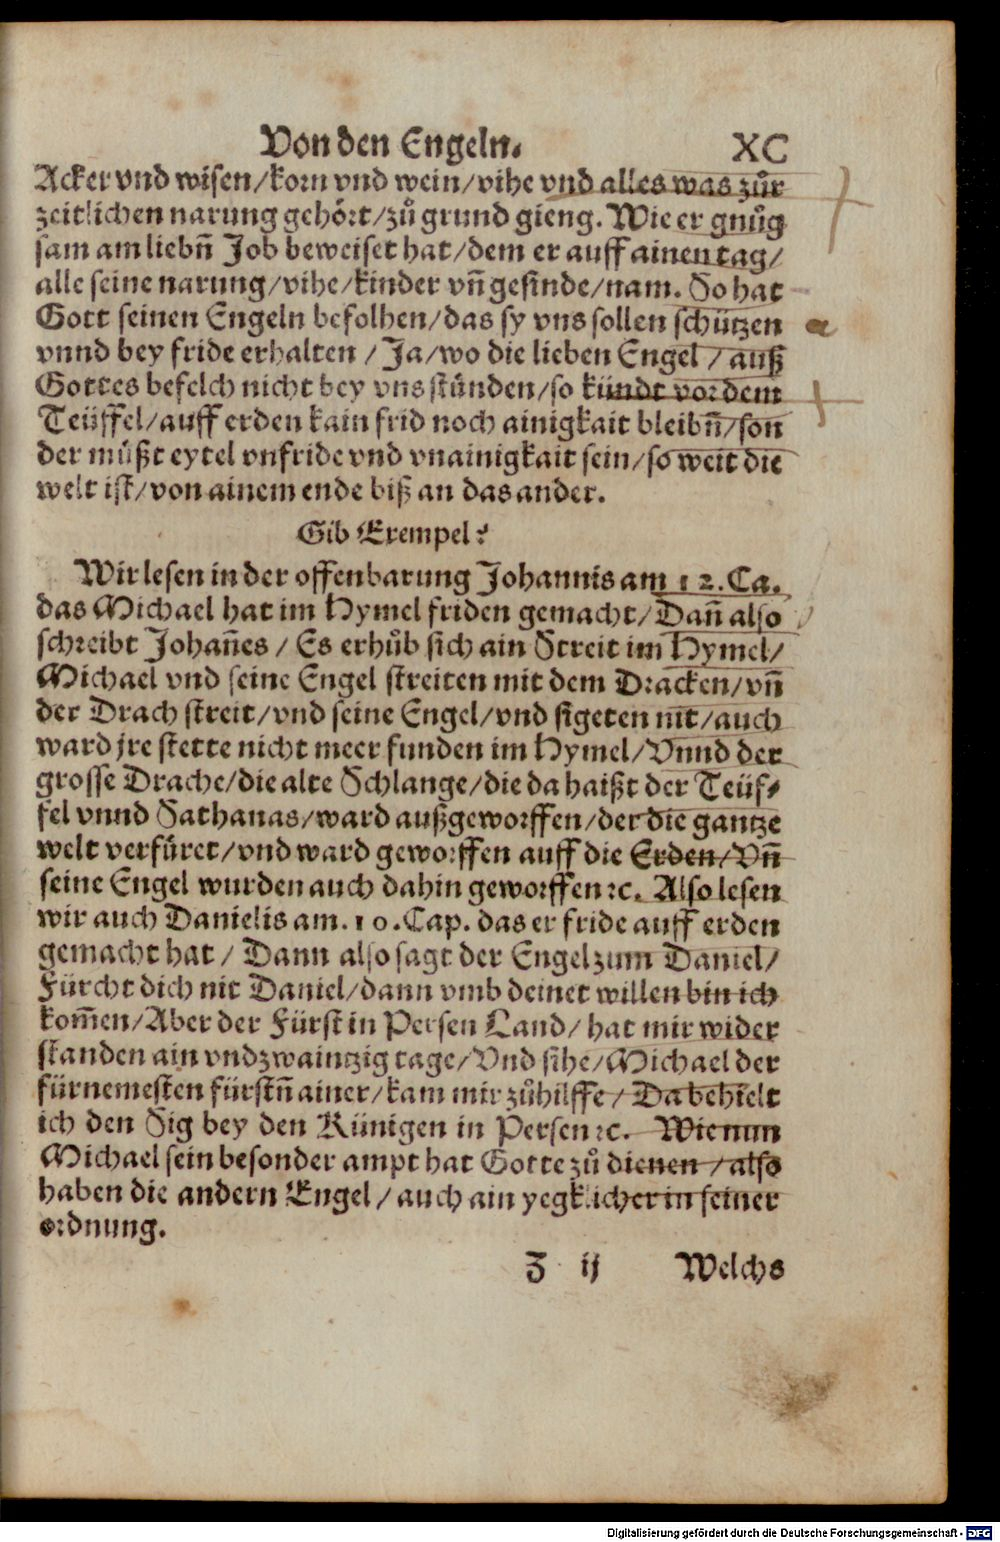 Von den Engeln. XC
Acker vnd wisen/korn vnd wein/vihe vnd alles was zůr
zeitlichen narung gehört/zů grund gieng. Wie er gnůg
sam am liebn̄ Job beweiset hat/dem er auff ainen tag/
alle seine narung/vihe/kinder vn̄ gesinde/nam. So hat
Gott seinen Engeln befolhen/das sy vns sollen schützen
vnnd bey fride erhalten / Ja/wo die lieben Engel / auß
Gottes befelch nicht bey vns stůnden/so kündt vor dem
Teüffel/auff erden kain frid noch ainigkait bleibn̄/son
der můßt eytel vnfride vnd vnainigkait sein/so weit die
welt ist/von ainem ende biß an das ander.
Gib Exempel?
Wir lesen in der offenbarung Johannis am 12. Ca.
das Michael hat im Hymel friden gemacht/Dan̄ also
schreibt Johan̄es / Es erhůb sich ain Streit im Hymel/
Michael vnd seine Engel streiten mit dem Dracken/vn̄
der Drach streit/vnd seine Engel/vnd sigeten nit/auch
ward jre stette nicht meer funden im Hymel/Vnnd der
grosse Drache/die alte Schlange/die da haißt der Teüf⸗
fel vnnd Sathanas/ward außgeworffen/der die gantze
welt verfüret/vnd ward geworffen auff die Erden/Vn̄
seine Engel wurden auch dahin geworffen ꝛc. Also lesen
wir auch Danielis am. 10. Cap. das er fride auff erden
gemacht hat / Dann also sagt der Engel zum Daniel/
Fürcht dich nit Daniel/dann vmb deinet willen bin ich
kom̄en/Aber der Fürst in Persen Land/hat mir wider
standen ain vnd zwaintzig tage/Vnd sihe/Michael der
fürnemesten fürstn̄ ainer/kam mir zůhilffe / Da behielt
ich den Sig bey den Künigen in Persen ꝛc. Wie nun
Michael sein besonder ampt hat Gotte zů dienen / also
haben die andern Engel / auch ain yegklicher in seiner
ordnung.
Z ij Welchs
Digitalisierung gefördert durch die Deutsche Forschungsgemeinschaft - DFG